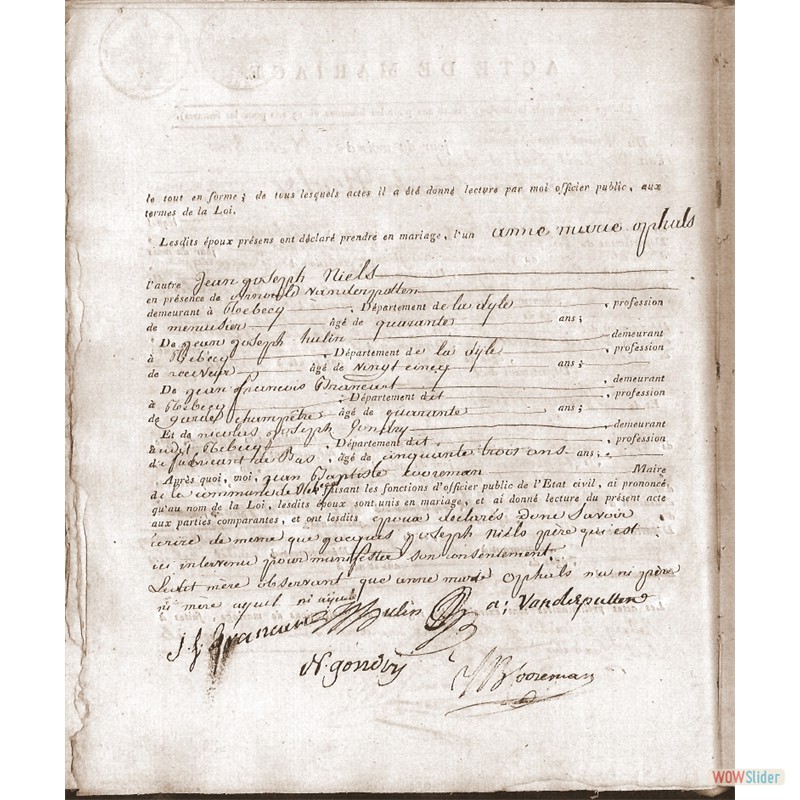 ACTE DE MARIAGE
le tout en forme; de tous lesquels actes il a été donné lecture par moi officier public, aux
termes de la Loi.
Lesdits époux présens ont déclaré prendre en mariage, l'un anne marie ophals
l'autre Jean joseph Niels
en présence de Arnould Vanderputten
demeurant à Rebecq Département de la dyle, profession
de menuisier âgé de quarante ans;
De jean joseph hulin demeurant
à Rebecq Département de la dyle, profession
de receveur âgé de vingt cincq ans;
De jean francois demeurant
à Rebecq Département dit, profession
de garde champêtre âgé de quarante ans;
Et de nicolas joseph gondry demeurant
audit Rebecq Département dit, profession
de fabricant de Bas, âgé de cinquante trois ans ans;
Après quoi, moi, jean Baptiste Maire
de la commune de faisant les fonctions d'officier public de l'Etat civil, ai prononcé,
qu'au nom de la Loi, lesdits époux sont unis en mariage, et ai donné lecture du présent acte
aux parties comparantes, et ont lesdits epoux declarés savoir
écrire de meme que jacques joseph niels père qui est
ici intervenu pour manifester son consentement
observant que anne marie ophals n'a ni père
ni mere ayeul ni ayeule
hulin a; Vanderputten
N. gondry
WOWSlider